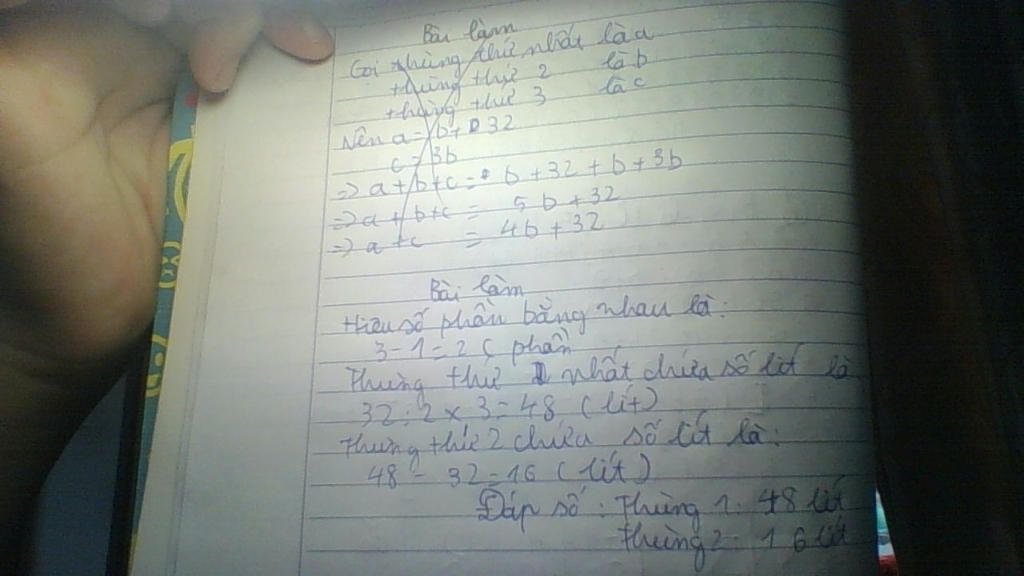 Bài làm
Gọi thùng thứ nhất là a
thùng thứ 2 là b
thùng thứ 3 là c
Nên a = b + 32
c = 3b
=> a + b + c = b + 32 + b + 3b
=> a + b + c = 5b + 32
=> a + c = 4b + 32
Bài làm
Hiệu số phần bằng nhau là:
3 - 1 = 2 ( phần
Thùng thứ nhất chứa số lít là
32 : 2 x 3 = 48 ( lít )
Thùng thứ 2 chứa số lít là:
48 - 32 = 16 ( lít )
Đáp số : Thùng 1: 48 lít
Thùng 2: 16 lít